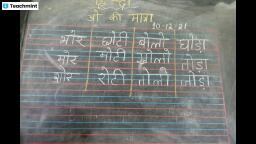 Teachmint
हिन्दी
ओ की मात्रा
10-12-21
चोर छोटी बोलो घोड़ा
मोर मोटी तोड़ा
शोर रोटी तोली जोड़ा